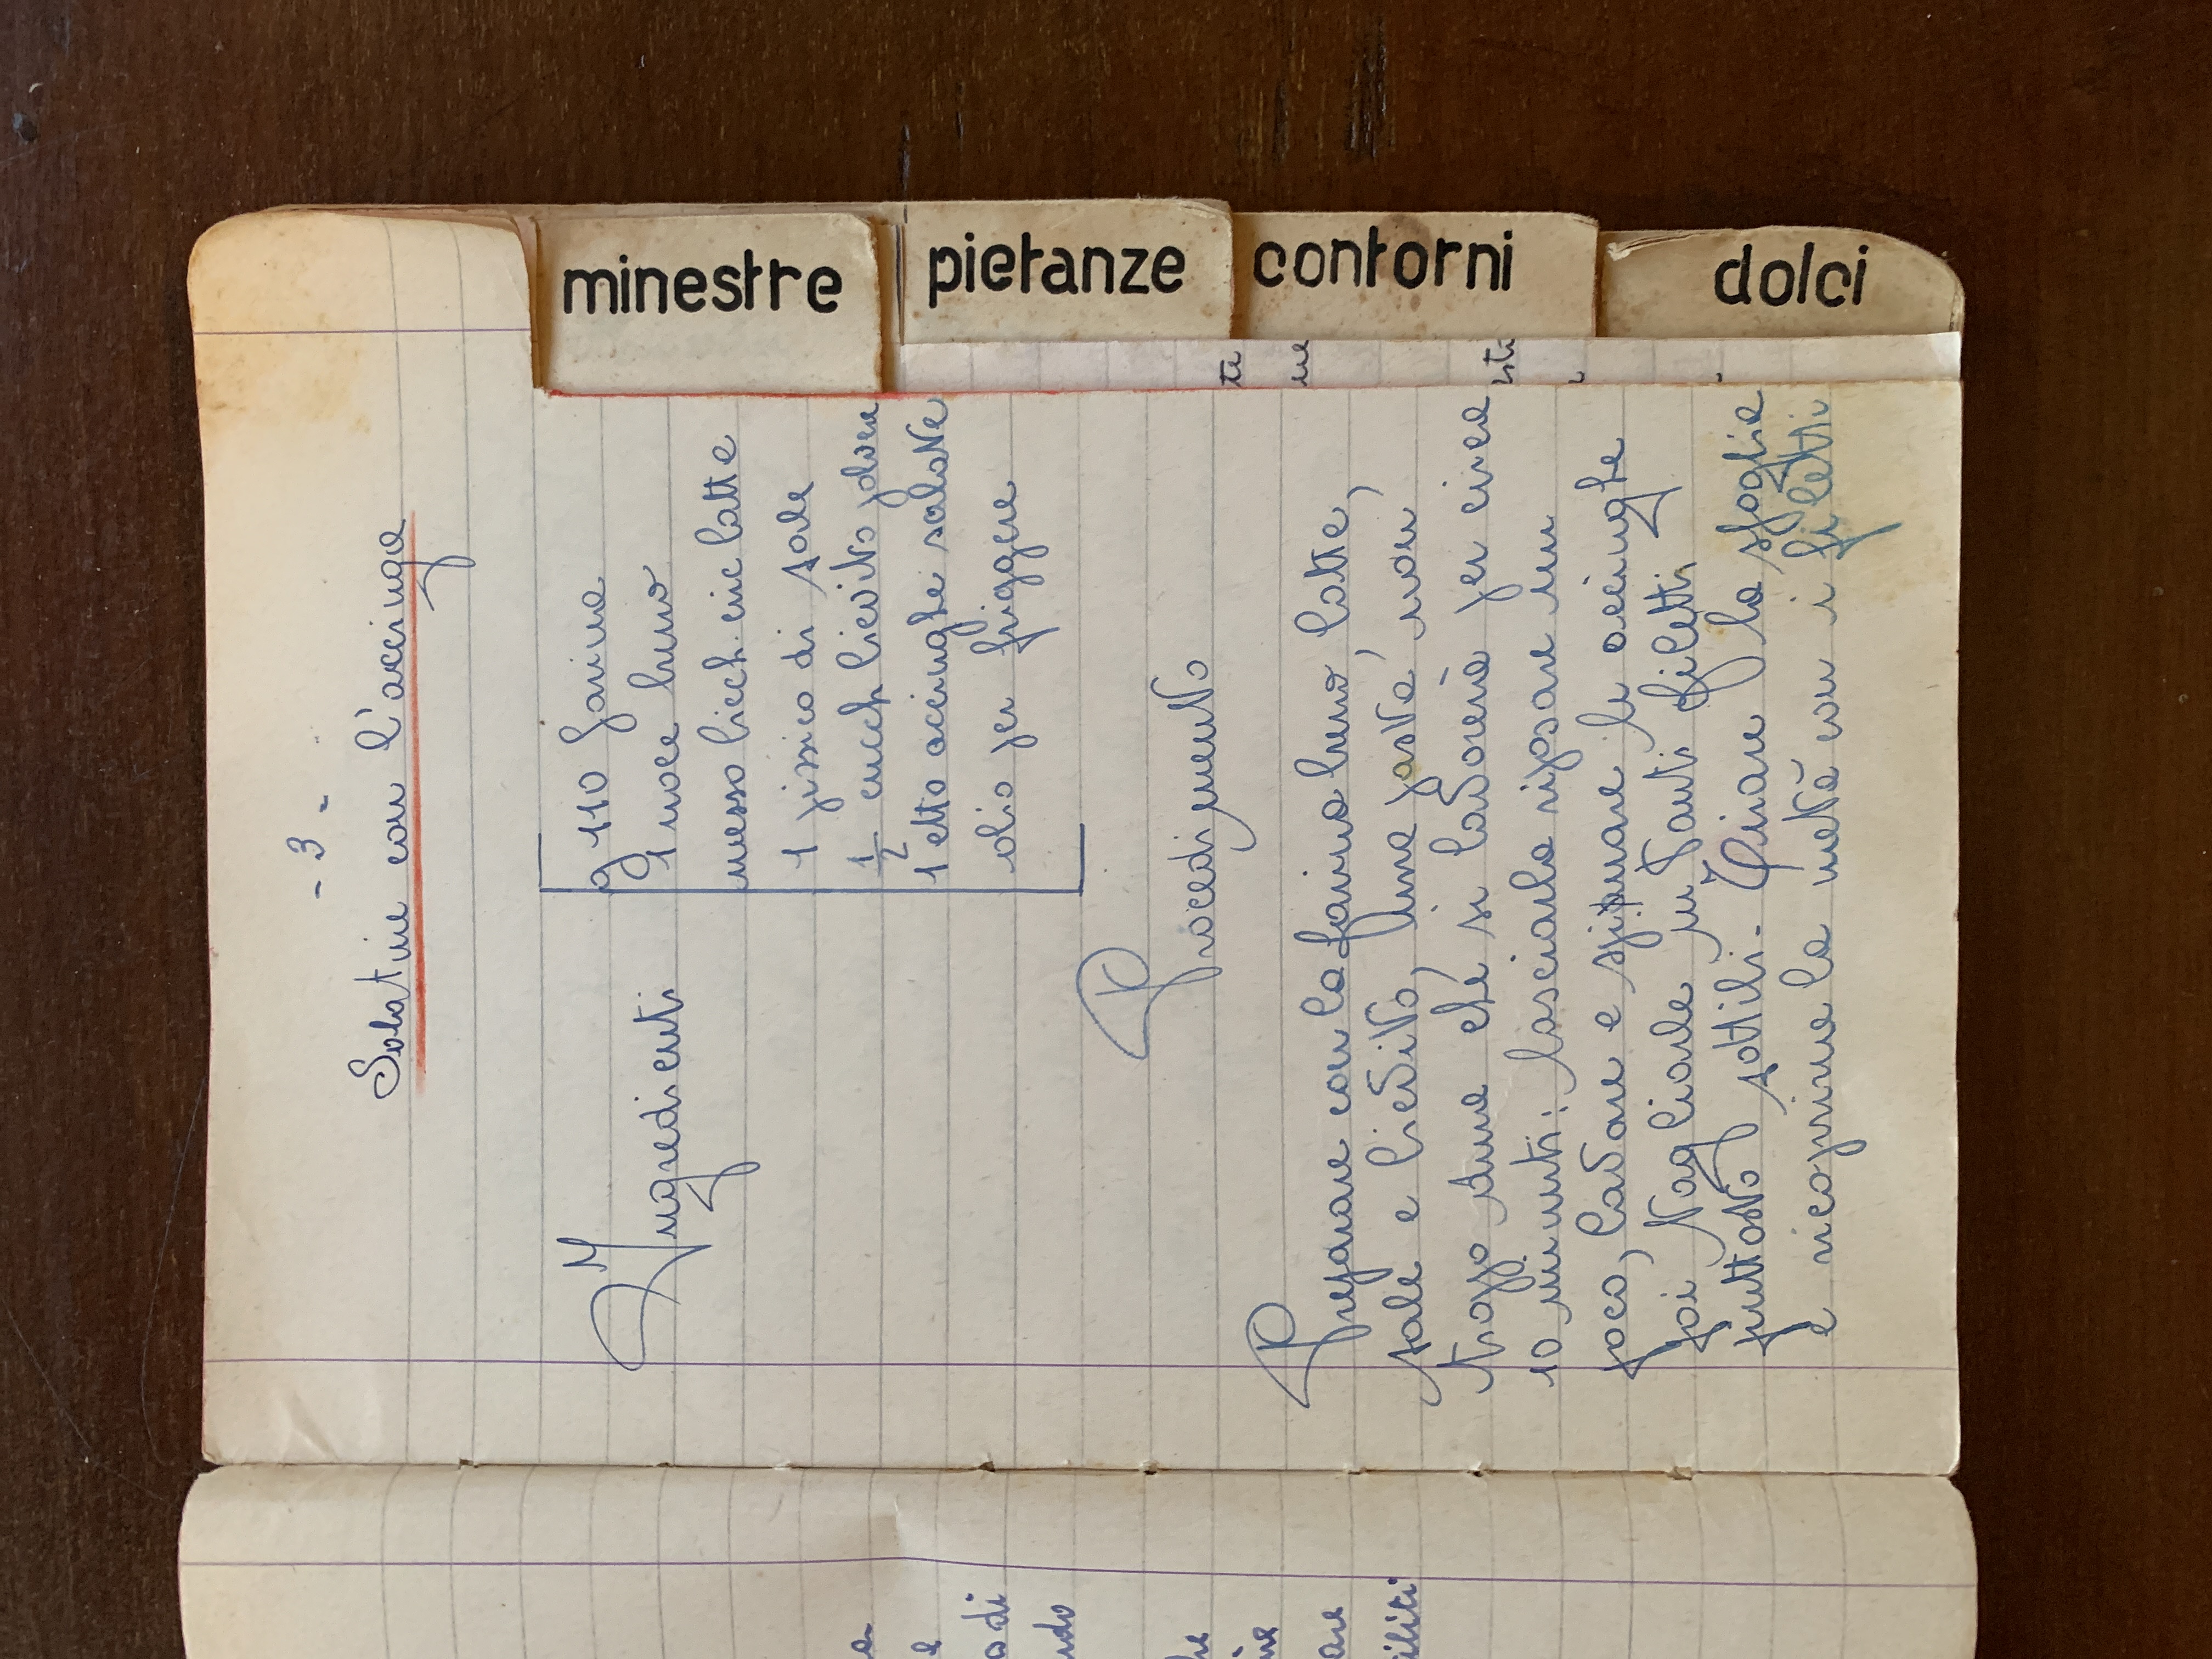 - 3 -
Salatine con l'acciuga
Ingredienti
g 110 farina
1 noce burro
mezzo bicch. circ latte
1 pizzico di sale
1/2 cucch lievito polvere
1 etto acciughe salate
olio per friggere
Procedimento
Preparare con la farina burro, latte,
sale e lievito, una pasta non
troppo dura che si lavorerà per circa
10 minuti: lasciarla riposare un
poco, lavare e spinare le acciughe
poi tagliarle in tanti filetti
piuttosto sottili - Tirare la sfoglia
e ricoprirne la metà con i filetti
minestre
pietanze
contorni
dolci